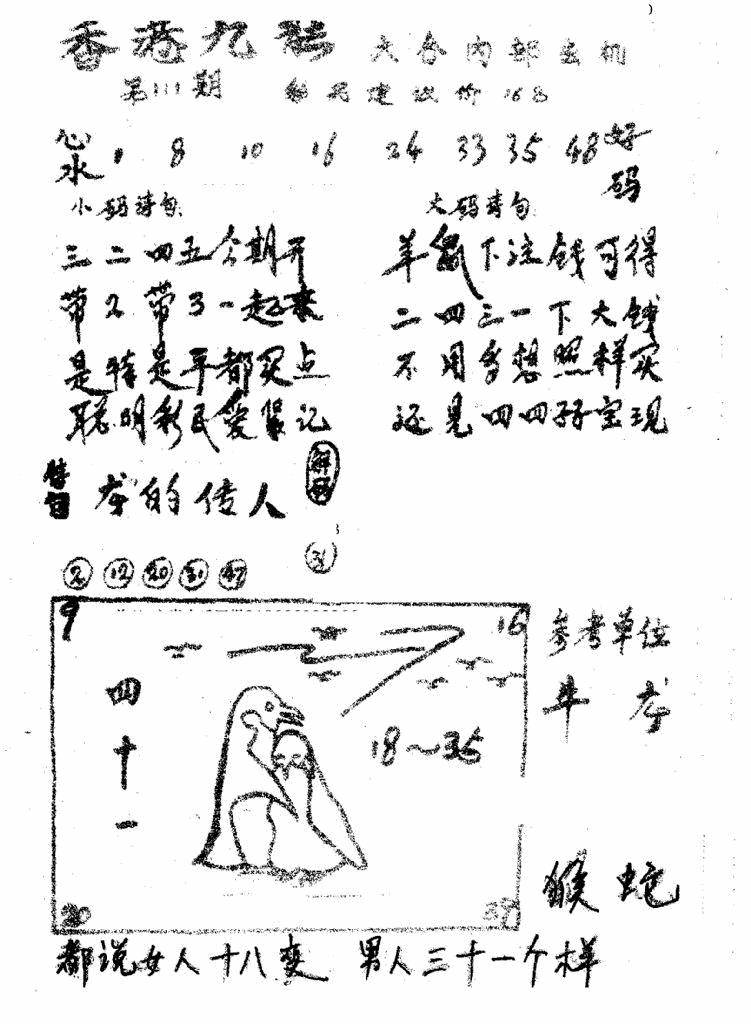 香港九龙 六合内部玄机
第111期 彩民建议价168
心水 1 8 10 16 24 33 35 48 好码
小码诗句 大码诗句
三二四五今期开 羊鼠下注钱可得
带2带3一起来 二四三一下大钱
是特是平都买点 不用多想照样买
聪明彩民爱最记 还见四四孖宝现
特旬 龙的传人
2 12 20 31 47 31
9 16 参考单位
四十一 18~35 牛 龙
猴 蛇
20 39
都说女人十八变 男人三十一个样